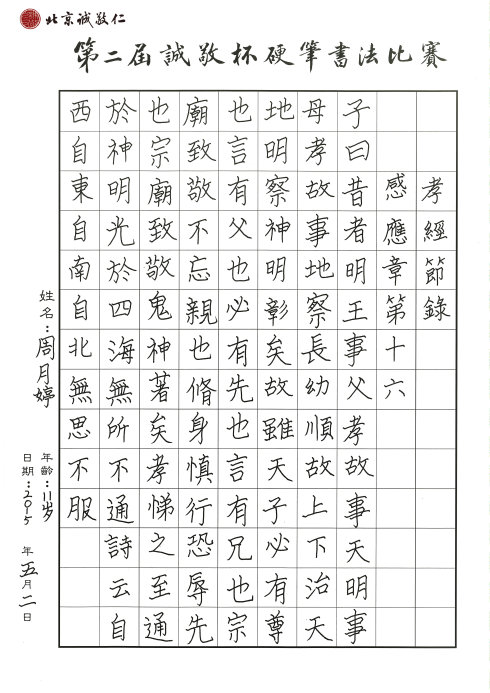 北京诚敬仁
第二届誠敬杯硬筆書法比賽
孝經節錄
感應章第十六
子曰昔者明王事父孝故事天明事
母孝故事地察長幼順故上下治天
地明察神明彰矣故雖天子必有尊
也言有父也必有先也言有兄也宗
廟致敬不忘親也脩身慎行恐辱先
也宗廟致敬鬼神著矣孝悌之至通
於神明光於四海無所不通詩云自
西自東自南自北無思不服
姓名：周月婷
年齡：11岁
日期：2015年五月二日